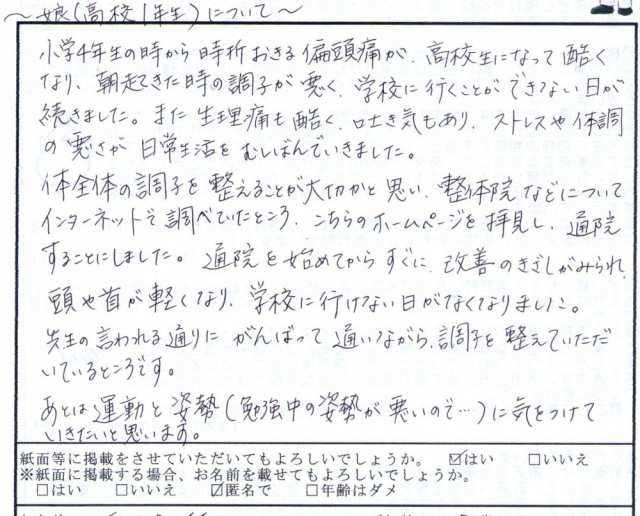 ～娘(高校1年生)について～
小学4年生の時から時折おきる偏頭痛が、高校生になって酷く
なり、朝起きた時の調子が悪く、学校に行くことができない日が
続きました。また生理痛も酷く、吐き気もあり、ストレスや体調
の悪さが日常生活をむしばんでいきました。
体全体の調子を整えることが大切かと思い、整体院などについて
インターネットで調べていたところ、こちらのホームページを拝見し、通院
することにしました。通院を始めてからすぐに、改善のきざしがみられ、
頭や首が軽くなり、学校に行けない日がなくなりました。
先生の言われる通りにがんばって通いながら、調子を整えていただ
いているところです。
あとは運動と姿勢(勉強中の姿勢が悪いので…)に気をつけて
いきたいと思います。
紙面等に掲載をさせていただいてもよろしいでしょうか。 ☑はい □いいえ
※紙面に掲載する場合、お名前を載せてもよろしいでしょうか。
□はい □いいえ ☑匿名で □年齢はダメ